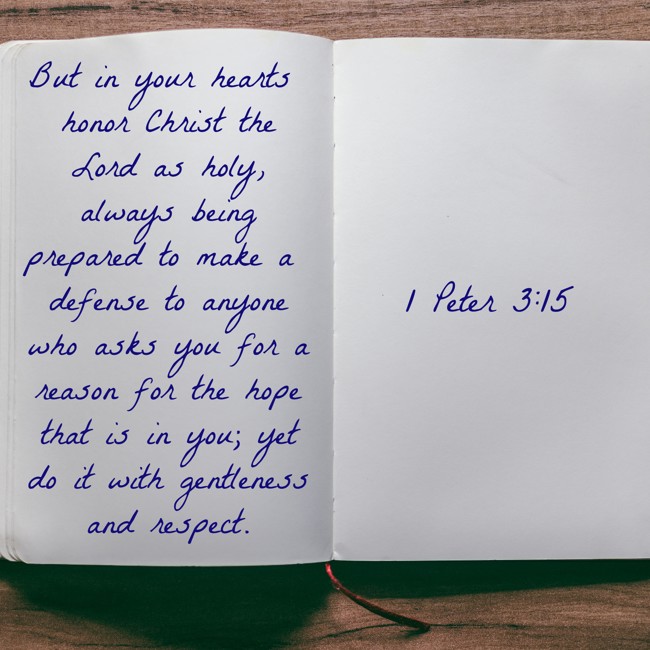 But in your hearts
honor Christ the
Lord as holy,
always being
prepared to make a
defense to anyone
who asks you for a
reason for the hope
that is in you; yet
do it with gentleness
and respect.
1 Peter 3:15